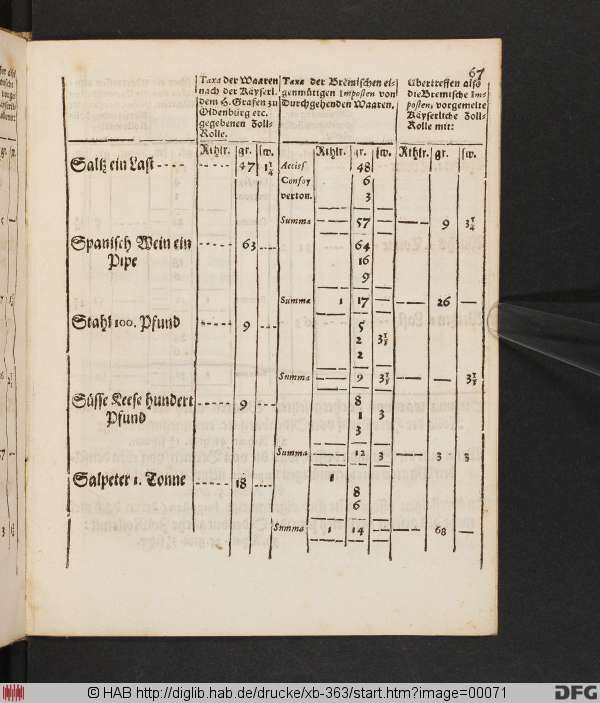 67
Taxa der Waaren nach der Käyserl. dem H. Grafen zu Oldenburg etc. gegebenen Zoll-Rolle.
Taxa der Bremischen eigennützigen Imposten von Durchgehenden Waaren.
Ubertreffen also die Bremische Imposten, vorgemelte Käyserliche Zoll-Rolle mit:
Rthlr. gr. sw. Rthlr. gr. sw. Rthlr. gr. sw.
Saltz ein Last - - - - - - - - 47 1¼ Acciss 48
Confoy 6
verton. 3
Summa — 57 — — 9 3¼
Spanisch Wein ein - - - - - 63 - - - 64
Pipe 16
9
Summa 1 17 — — 26 —
Stahl 100. Pfund - - - - - 9 - - - 5
2
2
Summa — 9 — —
Süsse Keese hundert - - - - - 9 - - - 8
Pfund 1 3
3
Summa — 12 3 — 3 3
Salpeter 1. Tonne - - - - - 18 - - - 1
8
6
Summa 1 14 — — 68 —
© HAB http://diglib.hab.de/drucke/xb-363/start.htm?image=00071
DFG